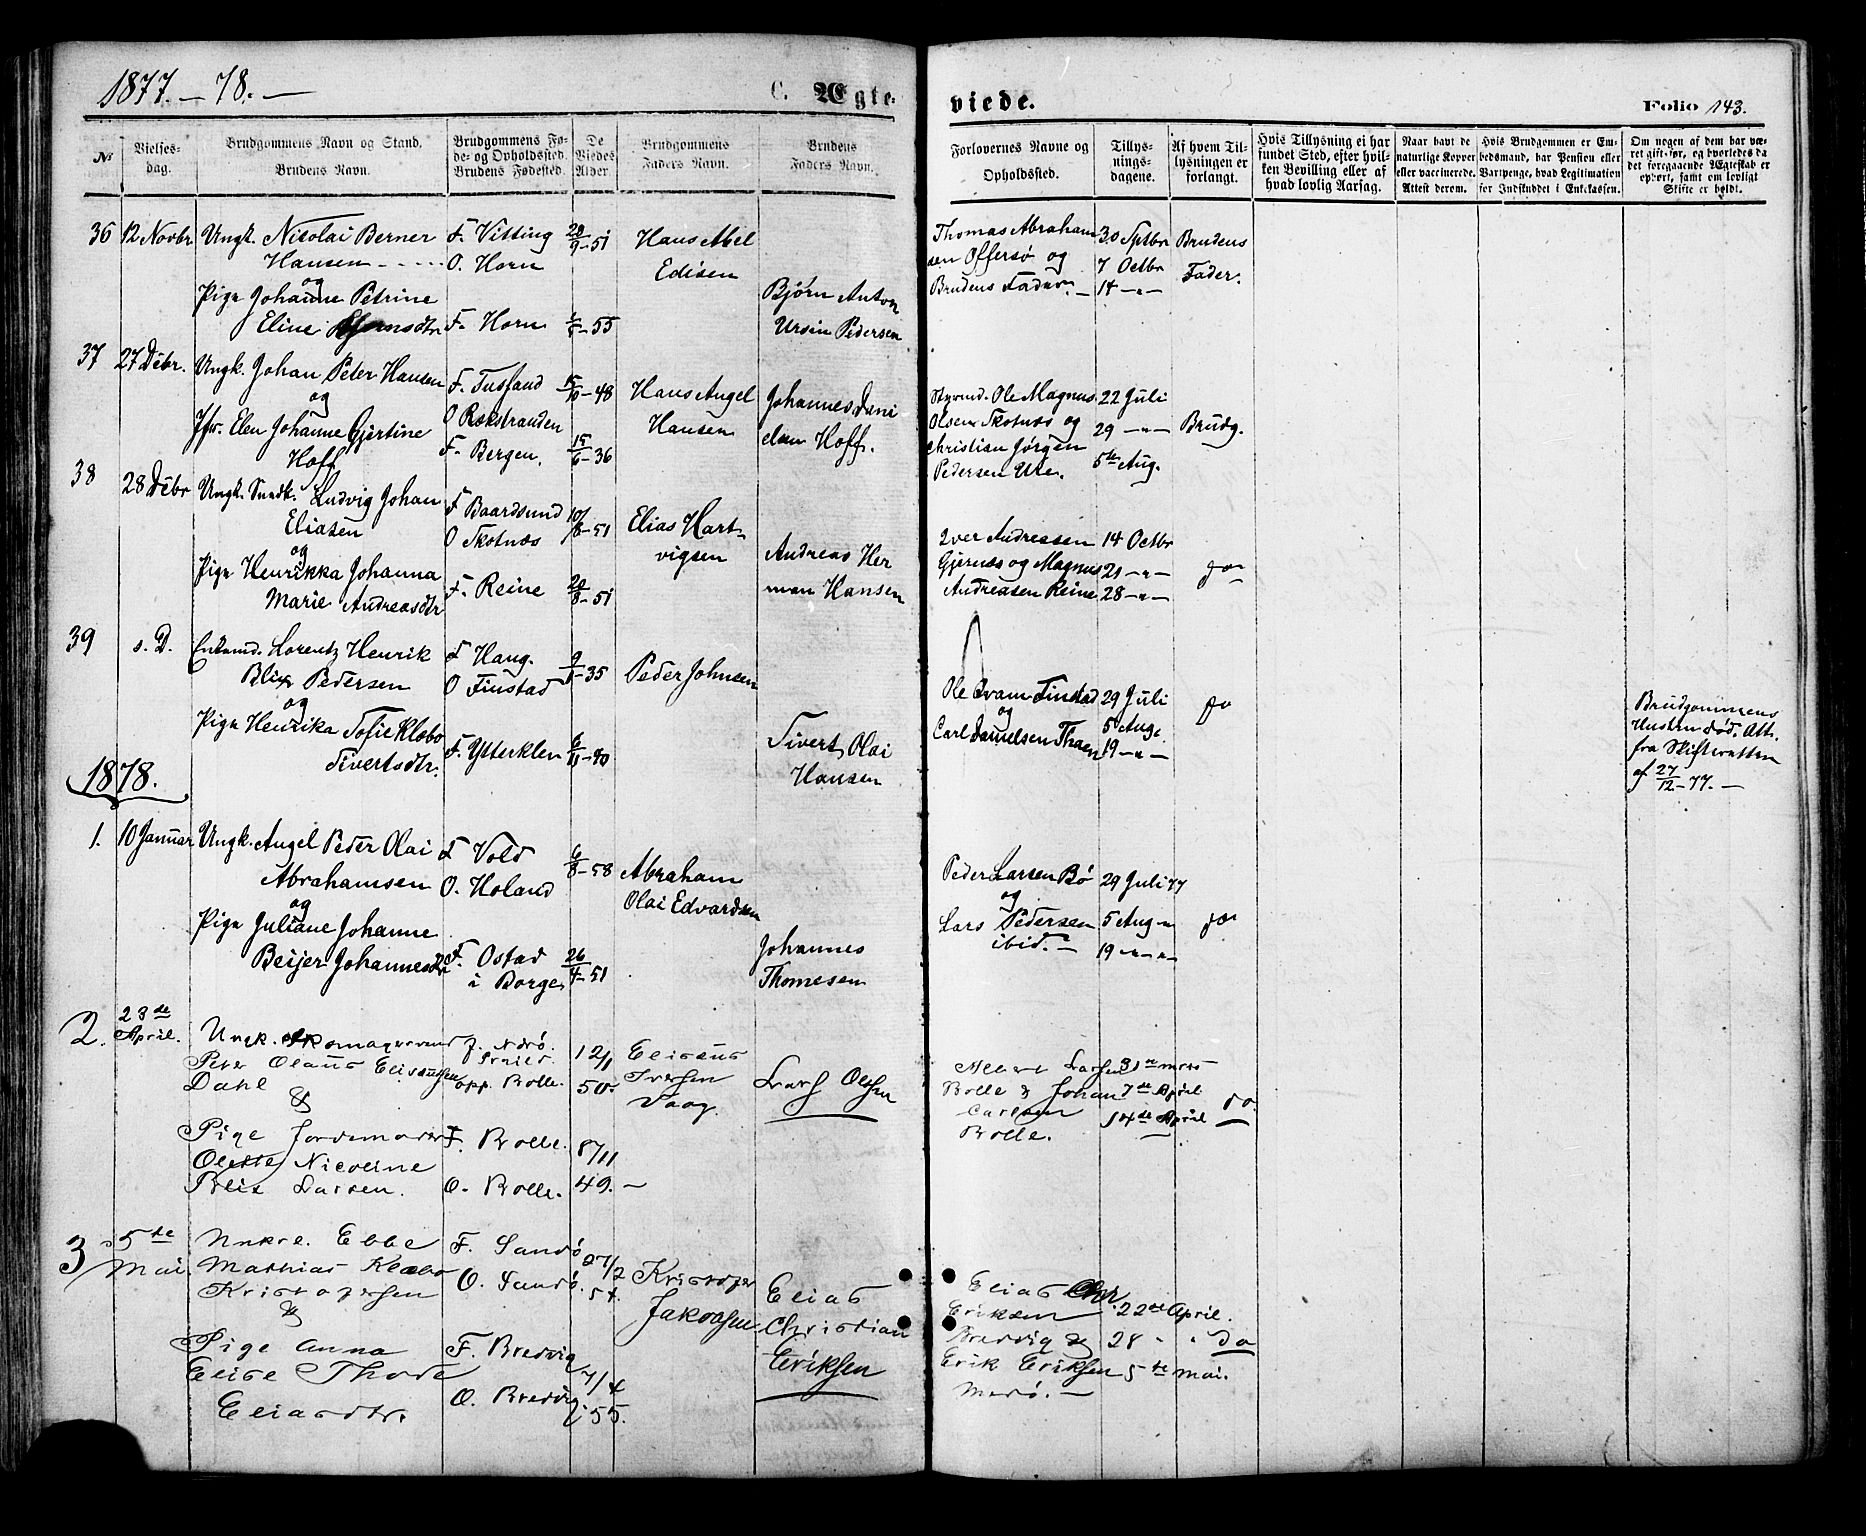 1877.-78.-
C. Ægte-
viede.
Folio 143.
№
Vielses-
dag.
Brudgommens Navn og Stand.
Brudens Navn.
Brudgommens Fø-
de- og Opholdssted.
Brudens Fødested.
De
Viedes
Alder.
Brudgommens
Faders Navn.
Brudens
Faders Navn.
Forlovernes Navne og
Opholdssted.
Tillys-
nings-
dagene.
Af hvem Til-
lysningen er
forlangt.
Hvis Tillysning ei har
fundet Sted, efter hvil-
ken Bevilling eller af
hvad lovlig Aarsag.
Naar havt de
naturlige Kopper
eller vaccinerede.
Attest derom.
Hvis Brudgommen er Em-
bedsmand, har Pension eller
Vartpenge, hvad Legitimation
for Indskuddet i Enk.kassen.
Om nogen af dem har væ-
ret gift før, og hvorledes da
det foregaaende Ægteskab er
ophørt, samt om lovligt
Skifte er holdt.
36 12 Novbr Ungk. Nicolai Berner
Hansen
og
Pige Johanne Petrine
Eline
F. Vitting
O. Horn
F. Horn
20/9-51
6/6-55
Hans Abel
Edisen
Bjørn Anton
Ursin Pedersen
Thomas Abraham
sen Offersø og
Brudens Fader.
30 Sptbr
7 Octbr
14 -"-
Brudens
Fader.
37 27 Dcbr. Ungk. Johan Peter Hansen
og
Jfr. Elen Johanne Gjertine
Hoff
F. Tusfand
O Rækstranden
F. Bergen.
15/10-48
15/6-36
Hans Angel
Hansen
Johannes Dani
elsen Hoff.
Styrmd. Ole Magnus
Olsen Skotnæs og
Christian Jørgen
Pedersen Ure.
22 Juli
29 -"-
5te Aug.
Brudg.
38 28 Dcbr Ungk. Smdk. Ludvig Johan
Eliasen
og
Pige Henrikka Johanna
Marie Andreasdtr
F Baardsund
O Skotnæs
F. Reine
10/8-51
20/8-51
Elias Hart-
vigsen
Andreas Her
man Hansen
Iver Andreasen
Gjernæs og Magnus
Andreasen Reine
14 Octbr
21 -"-
28 -"-
do
39 s. D. Enkemd. Lorentz Henrik
Blix Pedersen
og
Pige Henrika Sofie Klæbo
Sivertsdtr.
F Haug.
O Finstad
F. Ytterklen
9/1-35
6/11-40
Peder Johnsen
Sivert Olai
Hansen
Ole Qvam Finstad
og
Carl Danielsen Thoen
29 Juli
5 Aug.
19 -"-
do
Brudgommens
Hustru død. Att.
fra Skifteretten
af 27/12-77.-
1878.
1. 10 Januar Ungk. Angel Peder Olai
Abrahamsen
og
Pige Juliane Johanne
Beijer Johannesdtr
F Vold
O. Holand
F. Ostad
i Borge
6/8-58
26/4-51
Abraham
Olai Edvardsen
Johannes
Thomesen
Peder Larsen Bø
og
Lars Pedersen
ibid.
29 Juli 77
5 Aug -"
19 -"- -"-
do
2. 23de
April. Ungk. Skomagersvend
Peter Olaus Elisæussen
Dahl
&
Pige Jordemoder
Olette Nicoline
Blix Larsen.
f. Ndrø.
opp. Bolle.
F. Bolle.
O. Bolle.
12/1
50.
8/11
49. -
Elisæus
Iversen
Vaag.
Lars Olsen
Larsen
Bolle & Johan
Carlsen
Bolle.
31te mars
7de April
14de April
do.
3 5te
Mai. Unkrl. Ebbe
Mathias Klæbo
Kristofersen
&
Pige Anna
Elise Thode
Eliasdtr.
F. Sandø
O. Sandø.
F. Bredvig
O. Bredvig.
27/2
54.
7/4
55.
Kristofer
Jakobsen
Elias
Christian
Eriksen
Elias Chr.
Eriksen
Bredvig &
Erik Eriksen
22de April.
28 " "
5te Mai.
do